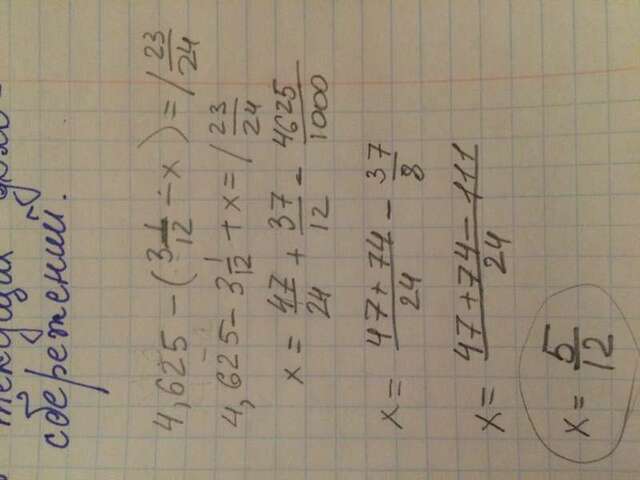 текущих
сбережений.
4,625 - (3 1/12 - x) = 1 23/24
4,625 - 3 1/12 + x = 1 23/24
x = 47/24 + 37/12 - 4625/1000
x = 47+74/24 - 37/8
x = 47+74-111/24
x = 5/12